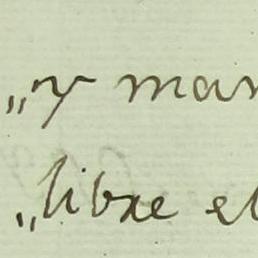 „y man
„libre el